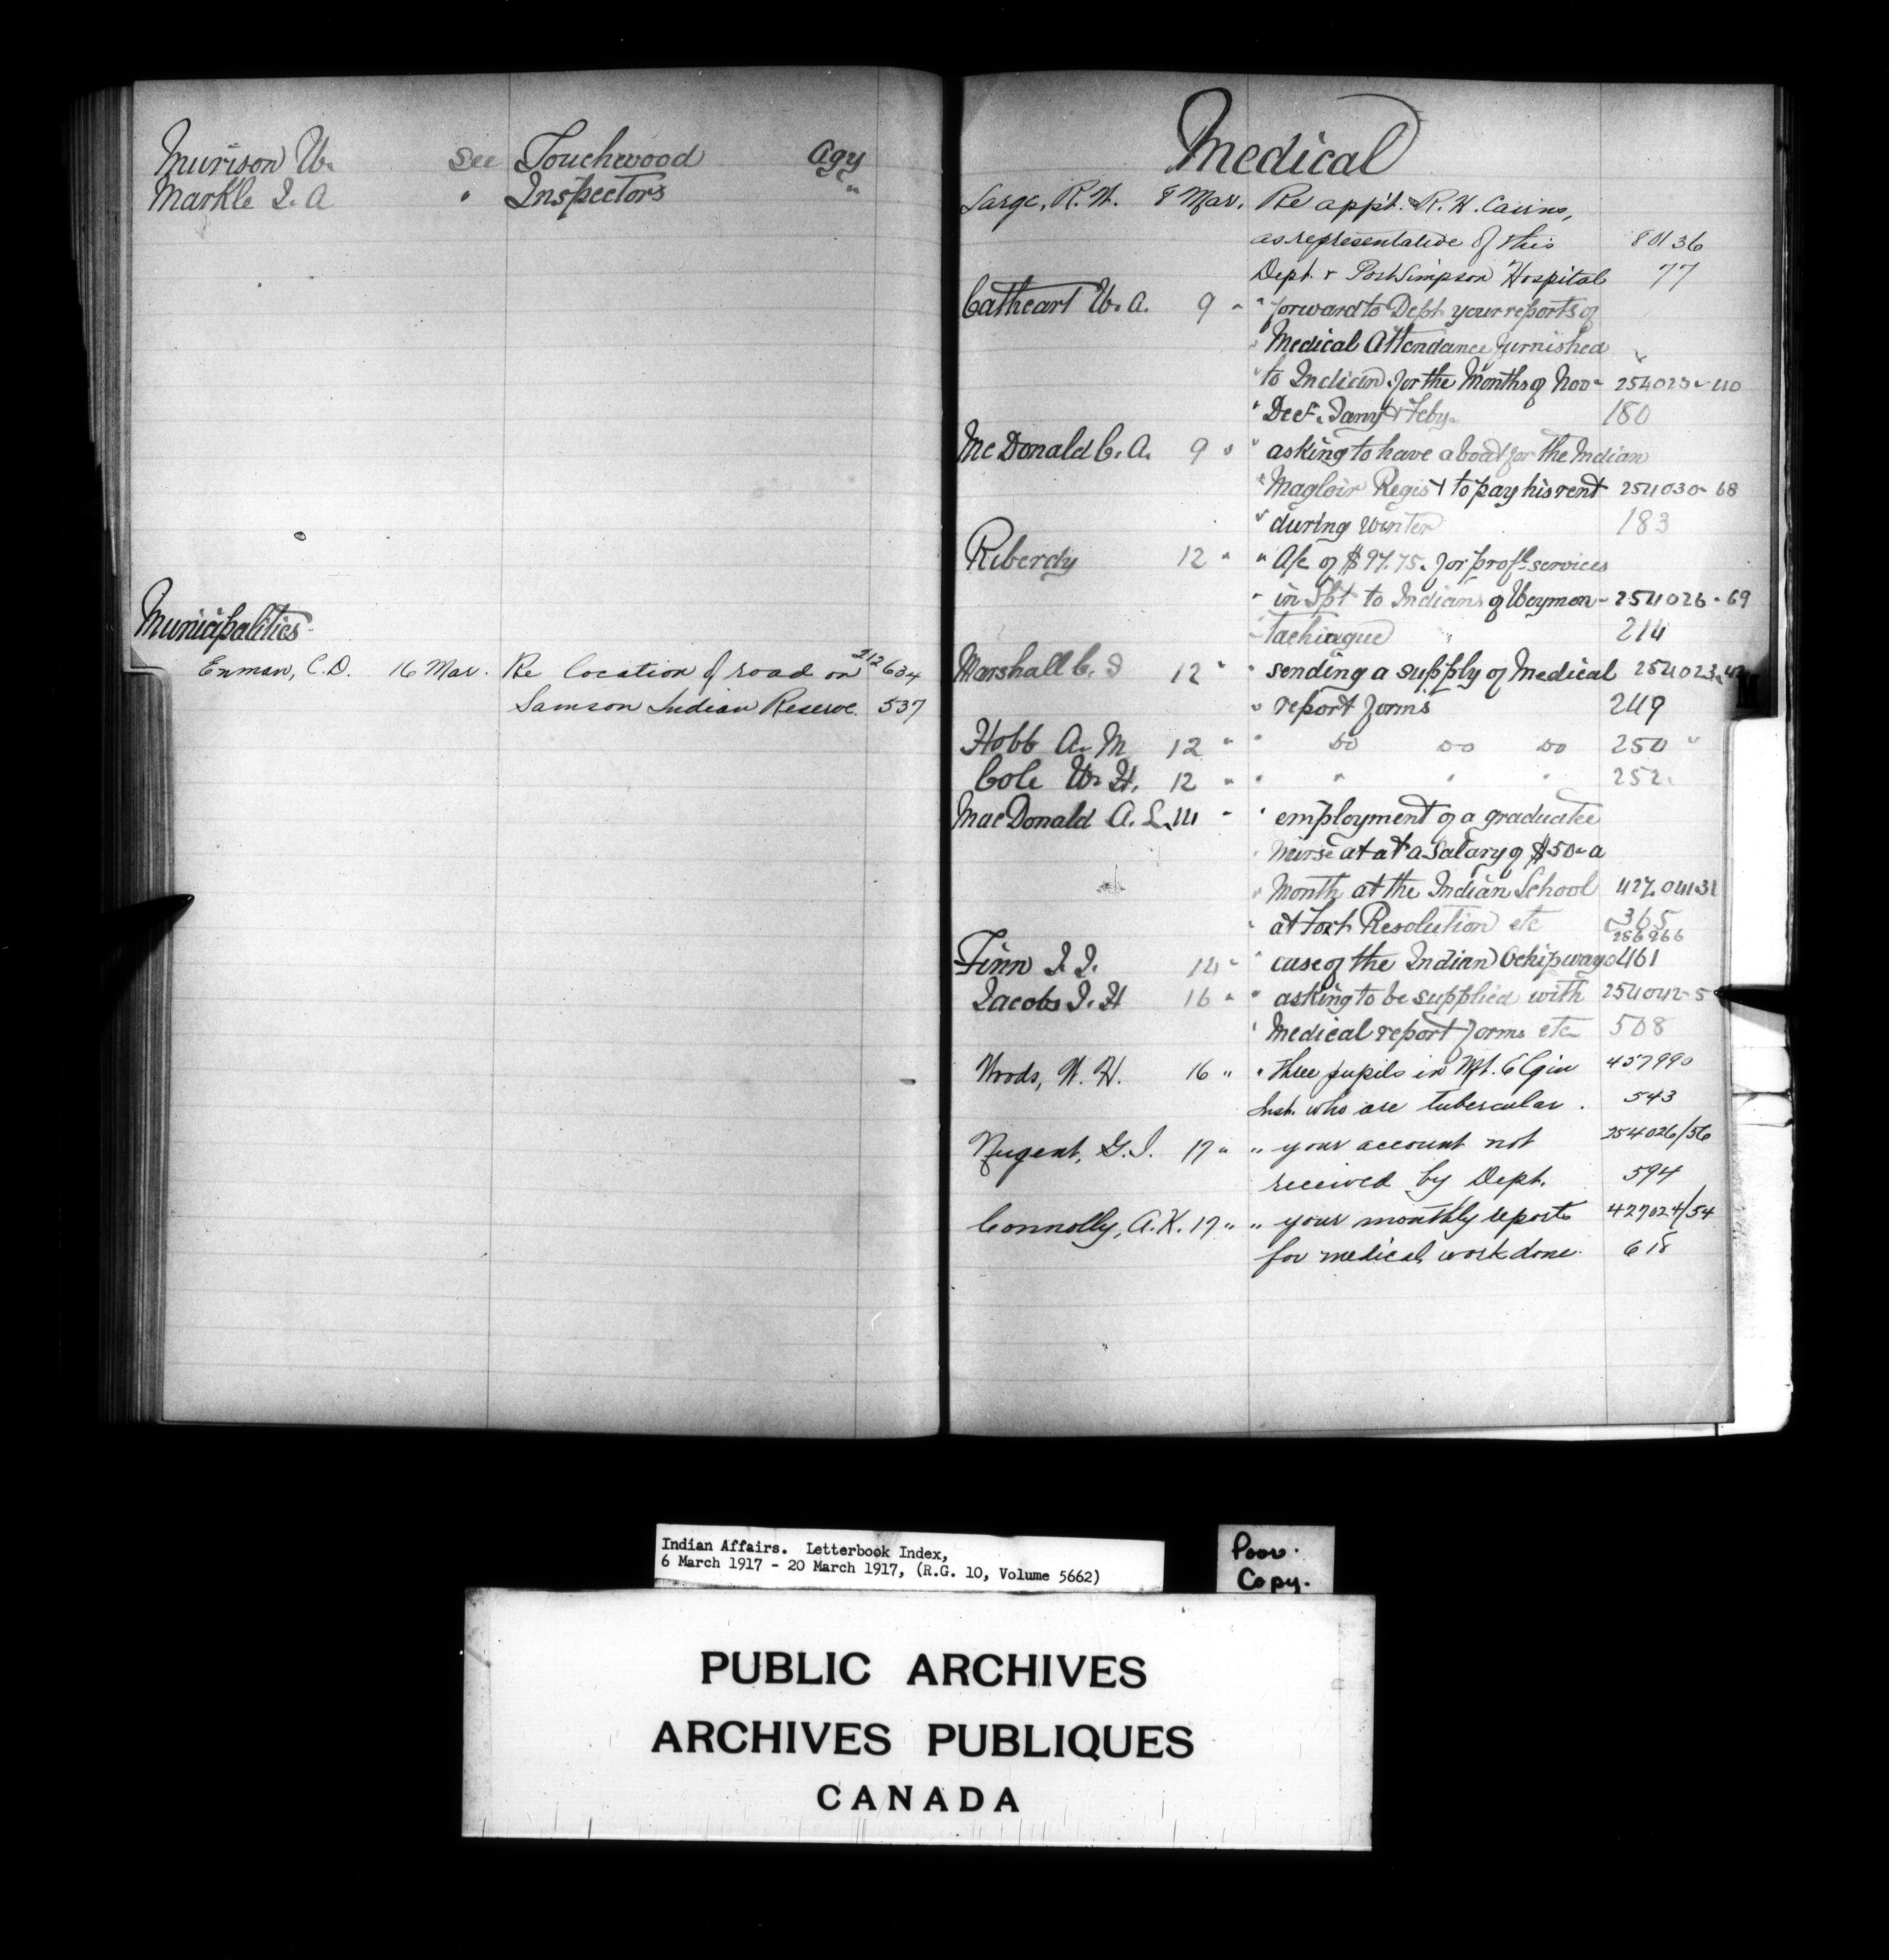 Murison W. See Touchwood Agy
Markle J. A " Inspectors "
Municipalities
Enman, C.D. 16 Mar. Re location of road on 212634
Samson Indian Reserve. 537
Medical
Large, R. W. 8 Mar. Re app't. R. H. Cairns,
as representative of this 80136
Dept. Port Simpson Hospital 77
Cathcart W. A. 9 " " forward to Dept your reports of
" Medical Attendance furnished
" to Indian for the Months of Nov - 254023-40
" Dec. Jany & Feby. 180
McDonald C. A. 9 " " asking to have a boat for the Indian
" Magloir Regist to pay his rent 254030-68
" during Winter 183
Riberdy 12 " " A/c of $97.75. for profl services
" in Spt to Indians of Weymon- 254026-69
- tachiague 214
Marshall C. J 12 " " sending a supply of Medical 254023-42
" report forms 249
Hobb A. M 12 " " do do do 250 "
Cole W. H. 12 " " " " " 252.
MacDonald A. L. 14 " " employment of a graduatee
" nurse at at a Salary of $50- a
" Month at the Indian School 427.04131
" at Fort Resolution etc 365
256966
Finn J. J. 14 " " case of the Indian Ochipwayo 461
Jacobs J. H 16 " " asking to be supplied with 254042-5
" Medical report forms etc 508
Woods, W. H. 16 " " three pupils in Mt. Elgin 457990
Inst. who are tubercular. 543
Nugent, G. J. 17 " " your account not 254026/56
received by Dept. 594
Connolly, A. K. 17 " " your monthly reports 427024/54
for medical work done. 618
Indian Affairs. Letterbook Index,
6 March 1917 - 20 March 1917, (R.G. 10, Volume 5662)
Poor.
Copy.
PUBLIC ARCHIVES
ARCHIVES PUBLIQUES
CANADA